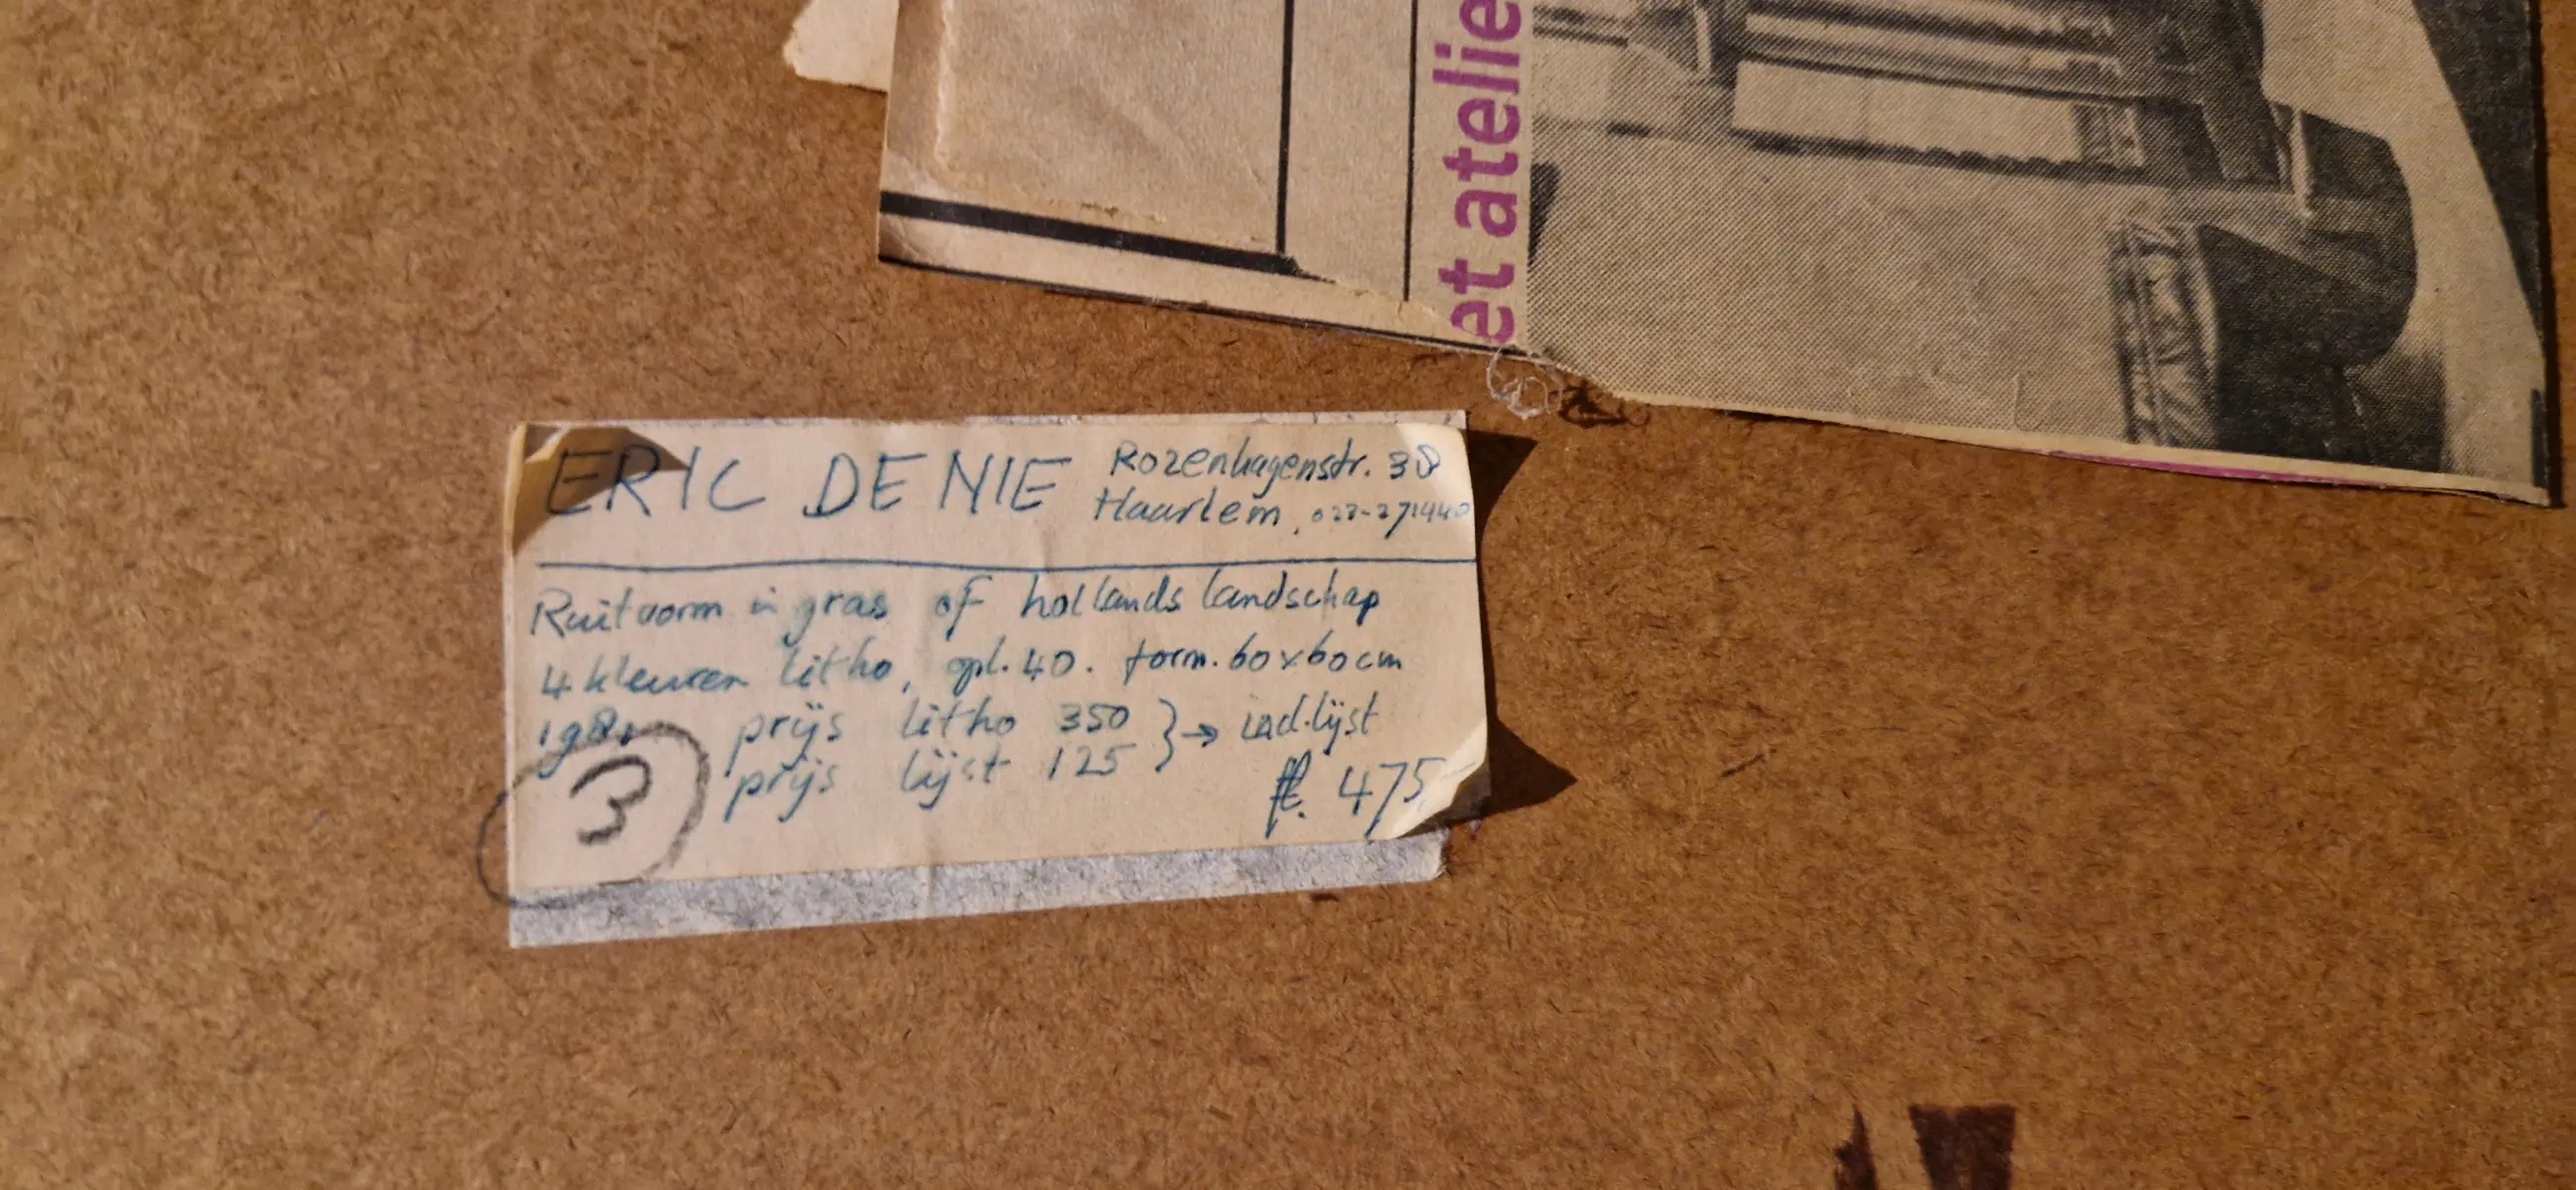 et atelie
ERIC DE NIE
Rozenhagenstr. 38
Haarlem, 023-271440
Ruitvorm in gras of hollands landschap
4 kleuren litho, opl. 40. form. 60x60cm
1981 prijs litho 350 } → incl. lijst
prijs lijst 125
fl. 475,-
3